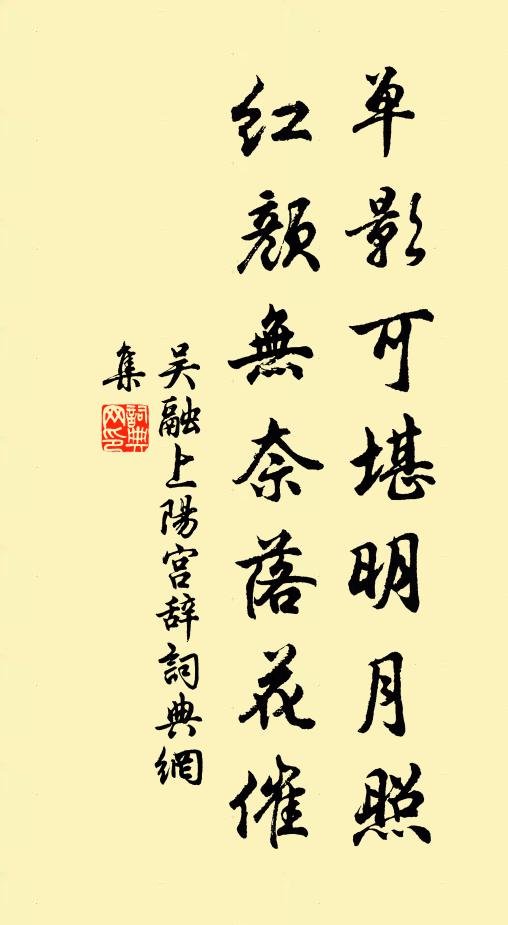 单影可堪明月照
红颜無奈落花催
吴融上陽宫辞詞典網
集
詞典网印